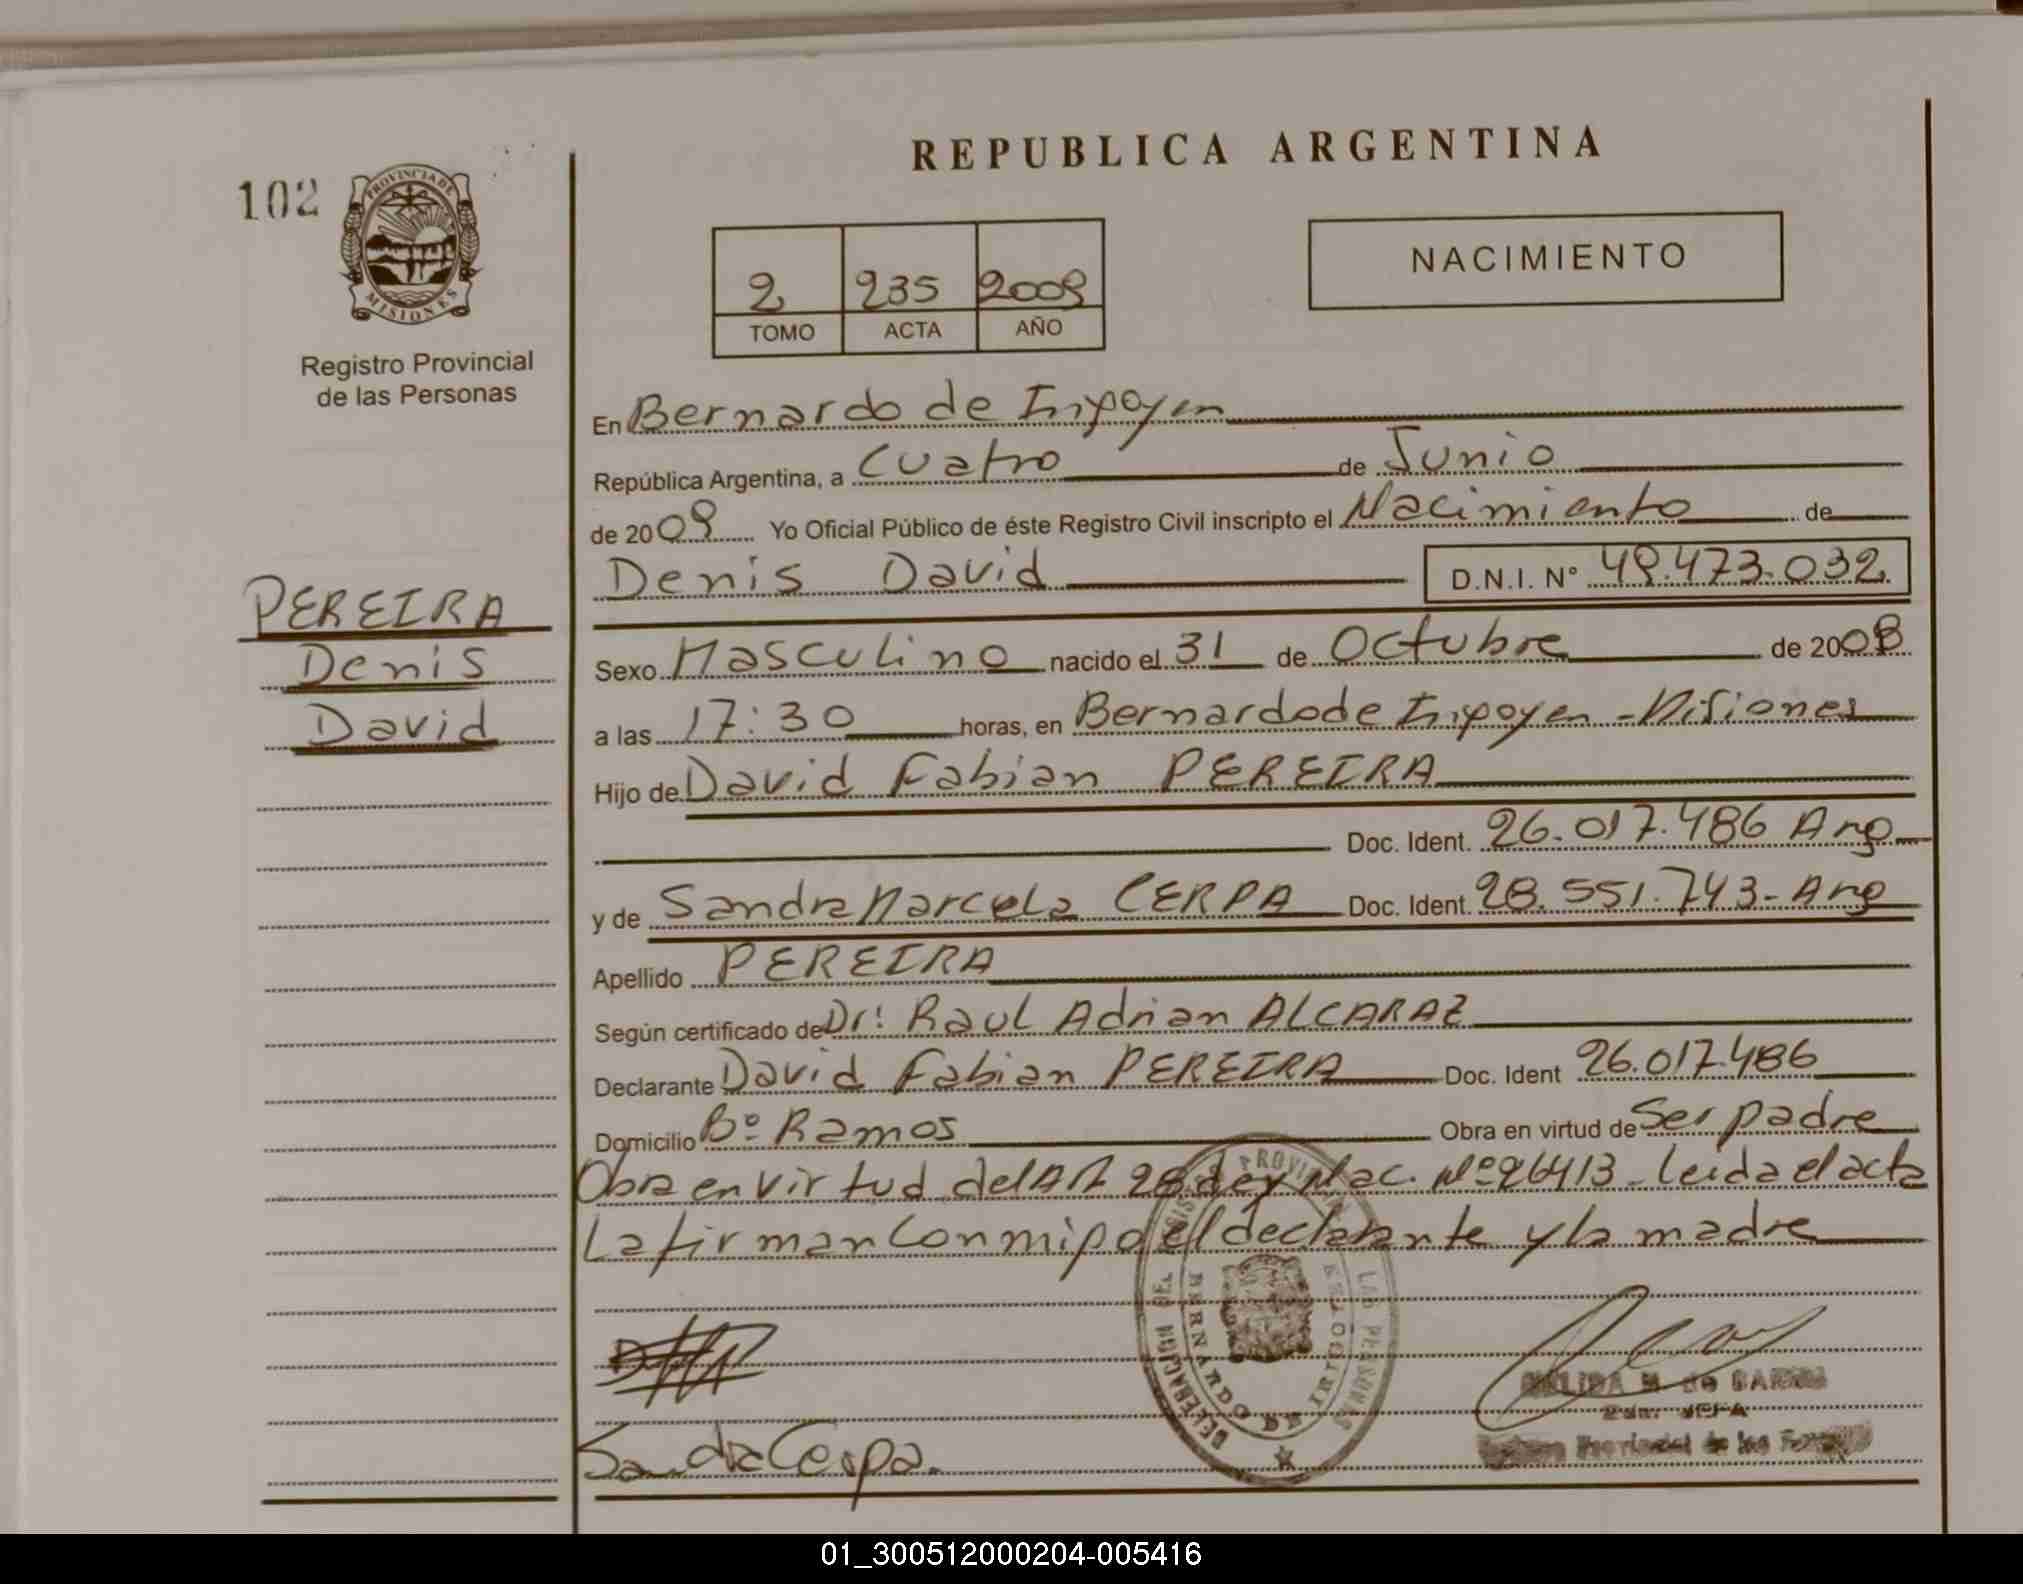 REPUBLICA ARGENTINA
102
PROVINCIA DE
MISIONES
Registro Provincial
de las Personas
2 235 2009
TOMO ACTA AÑO
NACIMIENTO
En Bernardo de Irigoyen
República Argentina, a Cuatro de Junio
de 2009 Yo Oficial Público de éste Registro Civil inscripto el Nacimiento de
Denis David D.N.I. N° 49.473.032
PEREIRA
Denis
David
Sexo Masculino nacido el 31 de Octubre de 2008
a las 17:30 horas, en Bernardo de Irigoyen - Misiones
Hijo de David Fabian PEREIRA
Doc. Ident. 26.017.486 Arg
y de Sandra Marcela CERPA Doc. Ident. 28.551.743 - Arg
Apellido PEREIRA
Según certificado de Dr: Raul Adrian ALCARAZ
Declarante David Fabian PEREIRA Doc. Ident 26.017.486
Domicilio B° Ramos Obra en virtud de Ser padre
Obra en virtud del Art 28 ley Nac. N° 26413 - leida el acta
La firman Conmigo el declarante y la madre
DELEGACION DEL LAS PERSONAS
BERNARDO DE IRIGOYEN
Sandra Cerpa.
Provincial de las
01_300512000204-005416